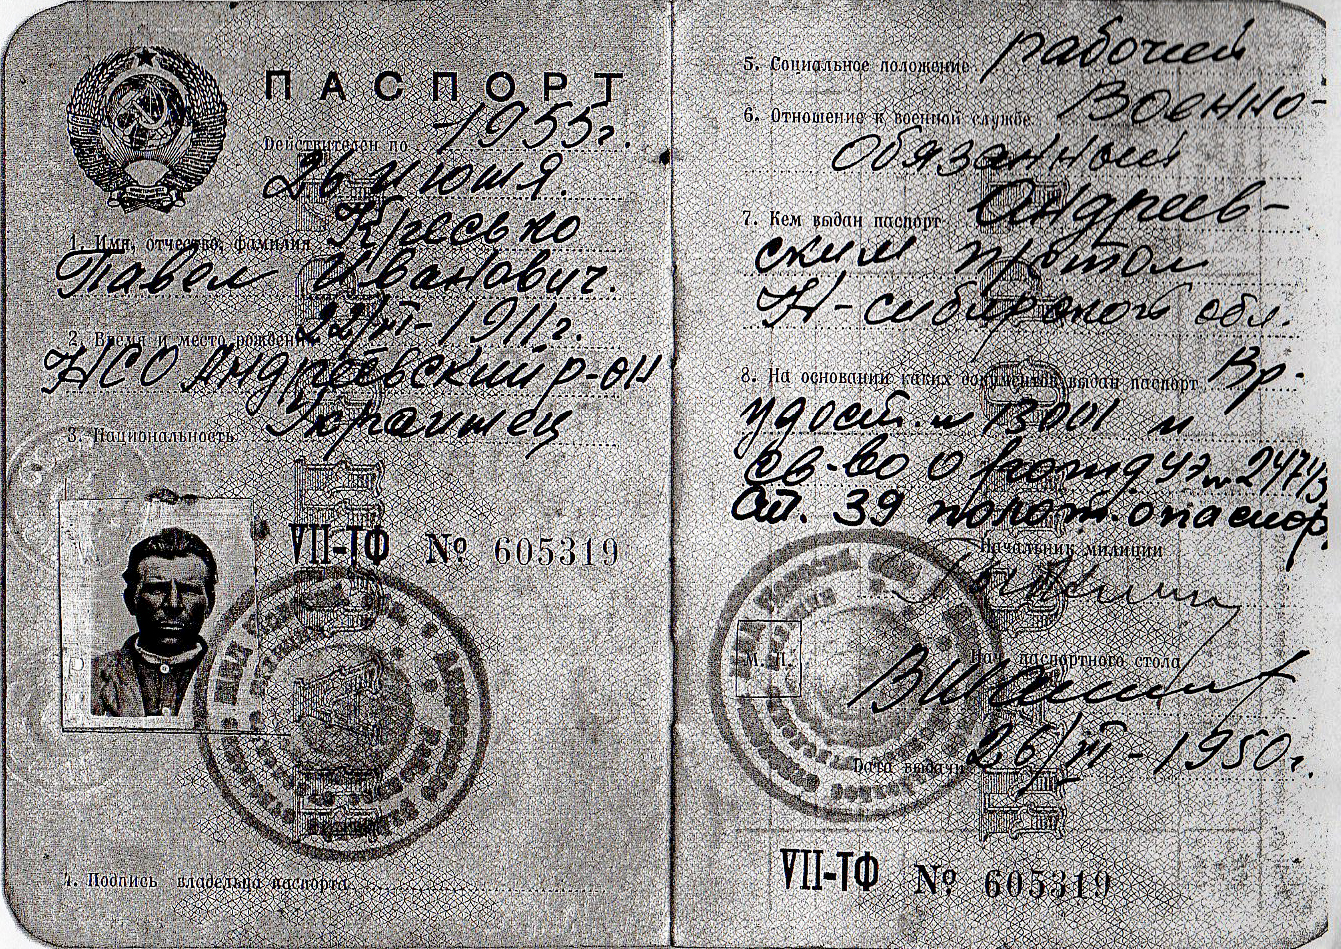 ПАСПОРТ
Действителен по 1955г.
26 июня.
1. Имя, отчество, фамилия Кресько
Павел Иванович.
2. Время и место рождения 22/VI-1911г.
НСО Андреевский р-он
3. Национальность Украинец
VII-ТФ № 605319
4. Подпись владельца паспорта
5. Социальное положение рабочий
6. Отношение к военной службе Военно-
обязанный
7. Кем выдан паспорт Андреев-
ским
Н-сибирской обл.
8. На основании каких документов выдан паспорт Вр.
удост. № 13001 и
св-во о рожд
Ст. 39 полож. о паспор
Начальник милиции
М. П.
Нач. паспортного стола
Дата выдачи 26/VI-1950г.
VII-ТФ № 605319